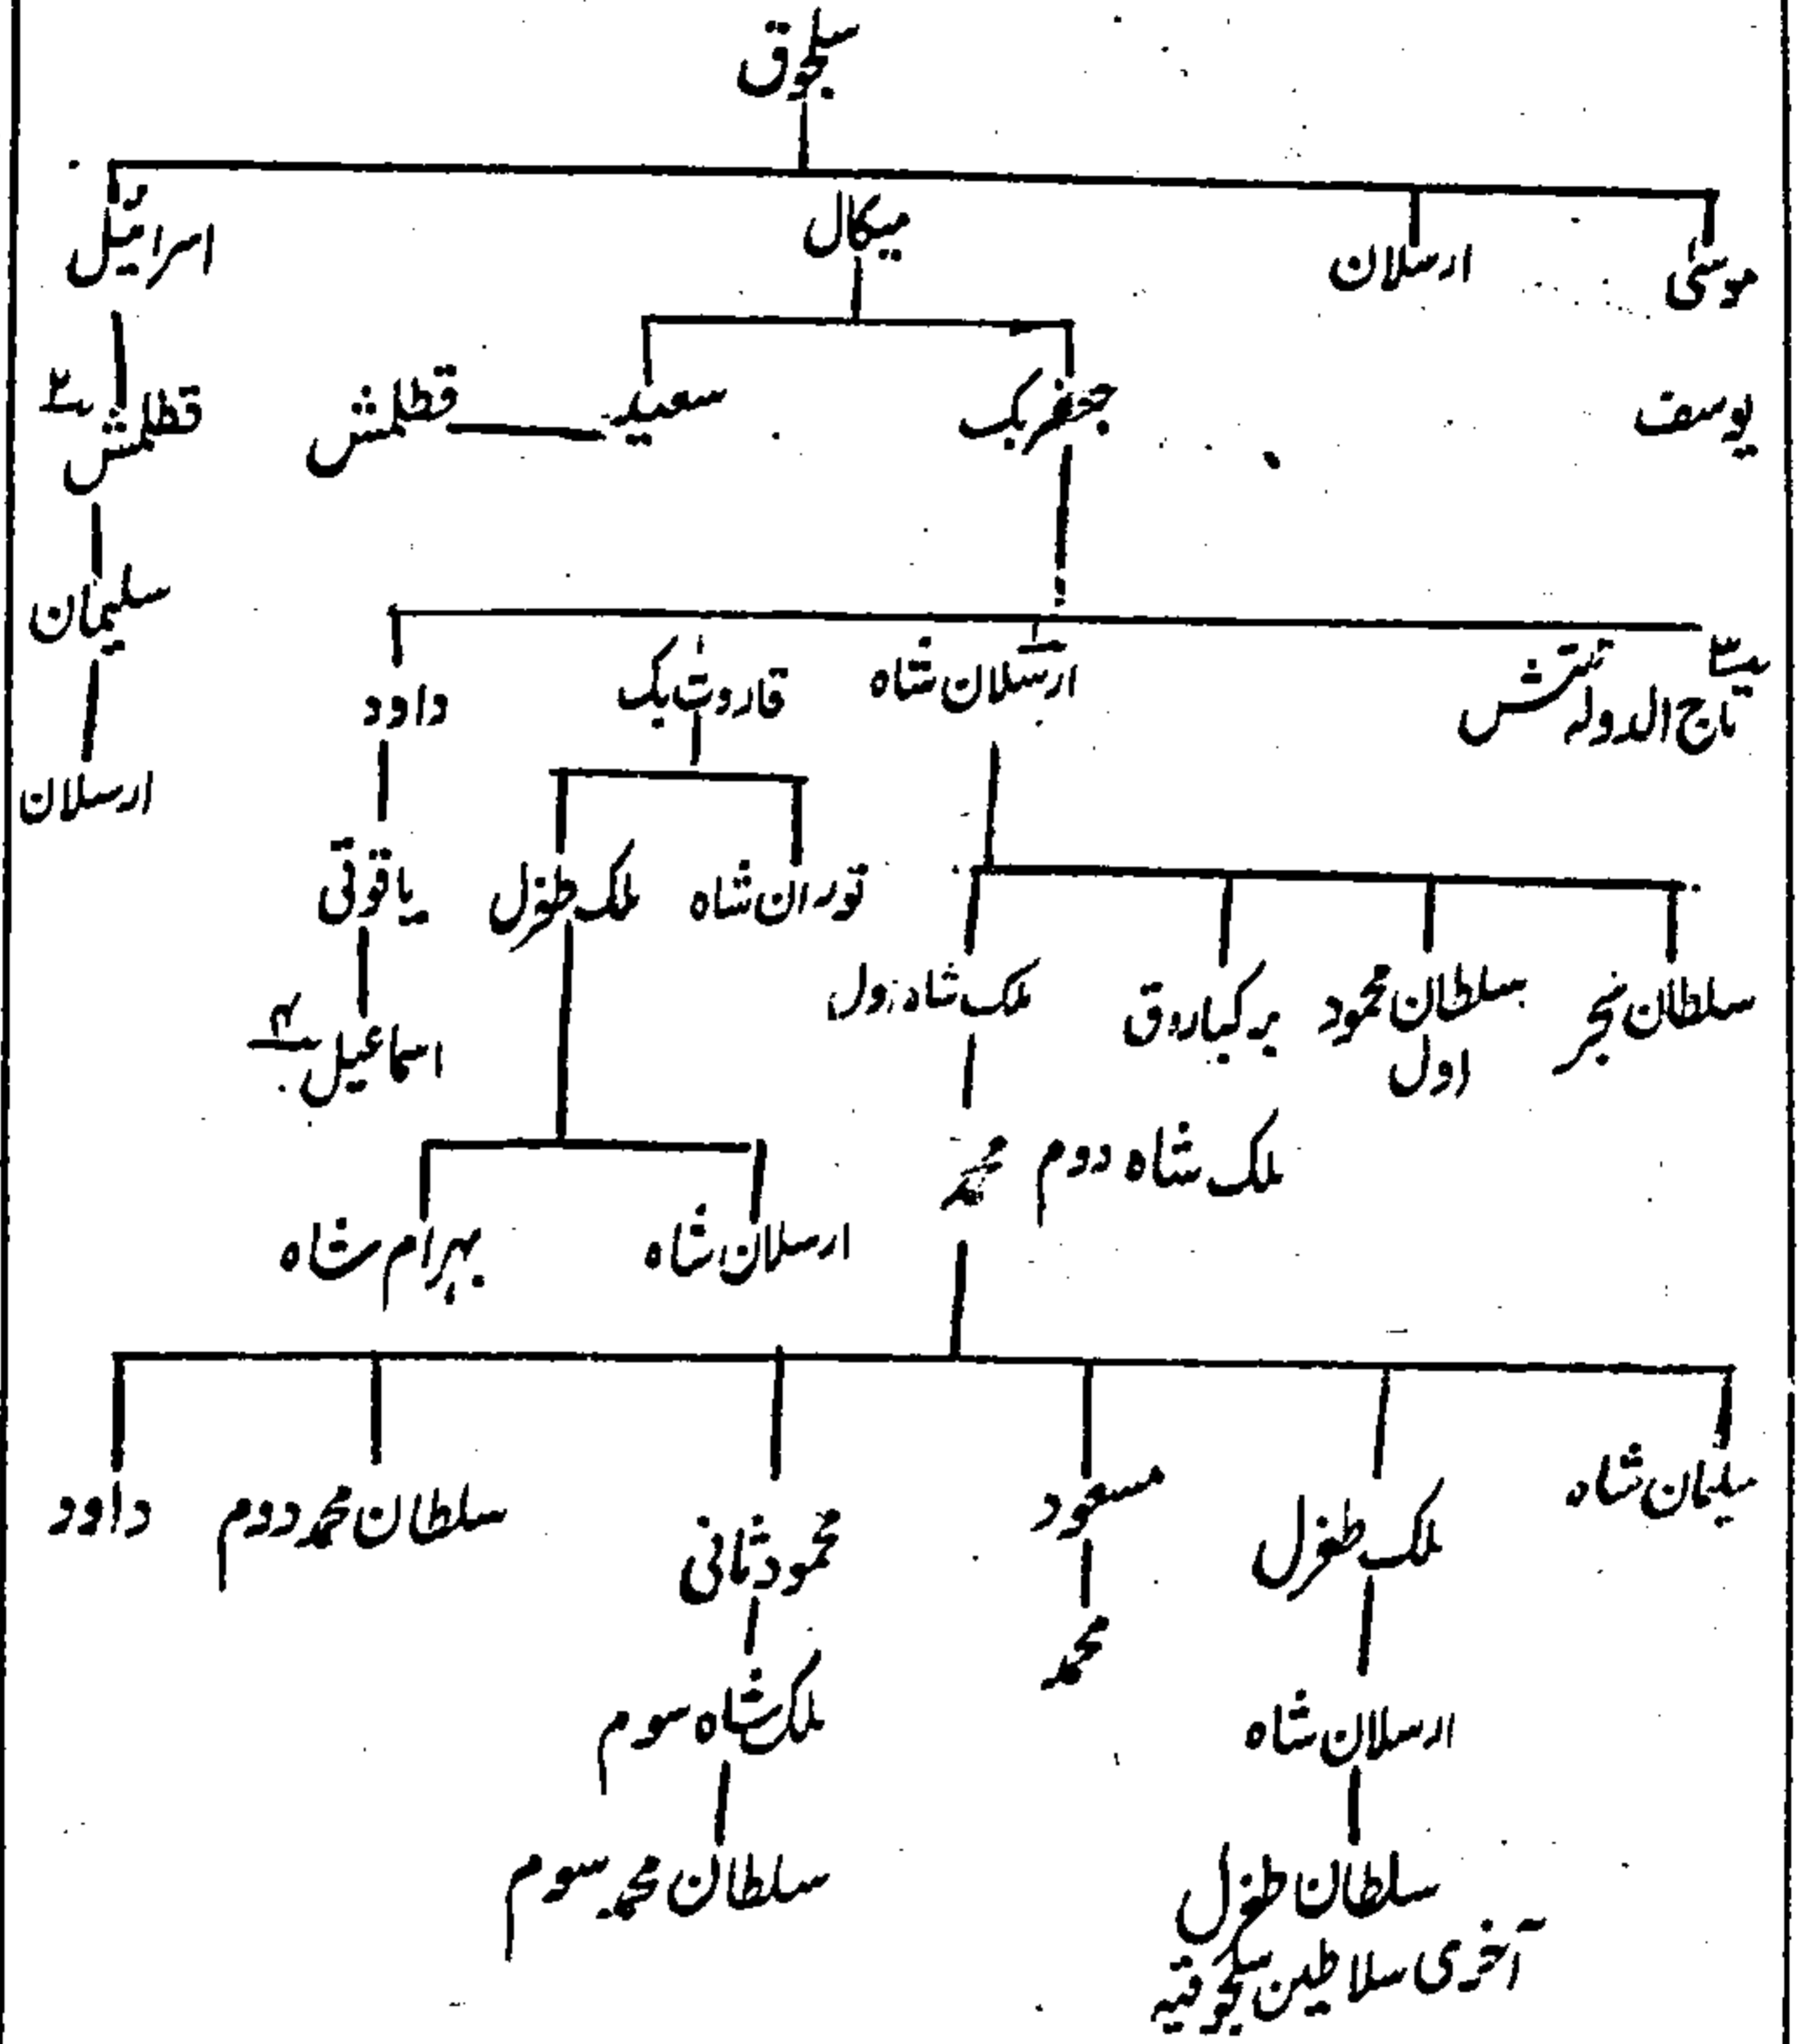 سلجوق
موسیٰ ارسلان میکال اسرائیل
یوسف جعفر بک سعید قطلمش قطلمش
سلیمان
تاج الدولہ تتش ارسلان شاہ قاروت بک داود
ارسلان
توران شاہ ملک طغرل یاقوتی
سلطان سنجر سلطان محمود برکیاروق ملک شاہ اول
اول
اسماعیل
ملک شاہ دوم محمد
ارسلان شاہ بہرام شاہ
سلیمان شاہ ملک طغرل مسعود محمود ثانی سلطان محمد دوم داود
محمد
ارسلان شاہ ملک شاہ سوم
سلطان طغرل سلطان محمد سوم
آخری سلاطین سلجوقیہ